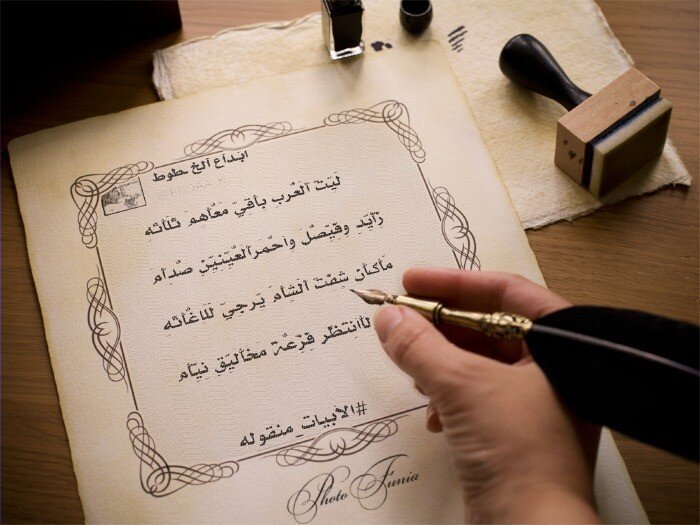 ابداع الخطوط
ليّت العرب باقيّ معاهم ثلاثه
زايّد وفيّصل واحمر العيّنيّن صدام
ماكان شفت الشام يّرجيّ للاغاثه
لاانتظر فزعة مخاليّق نيّام
#الابيات_منقوله
Photo Funia